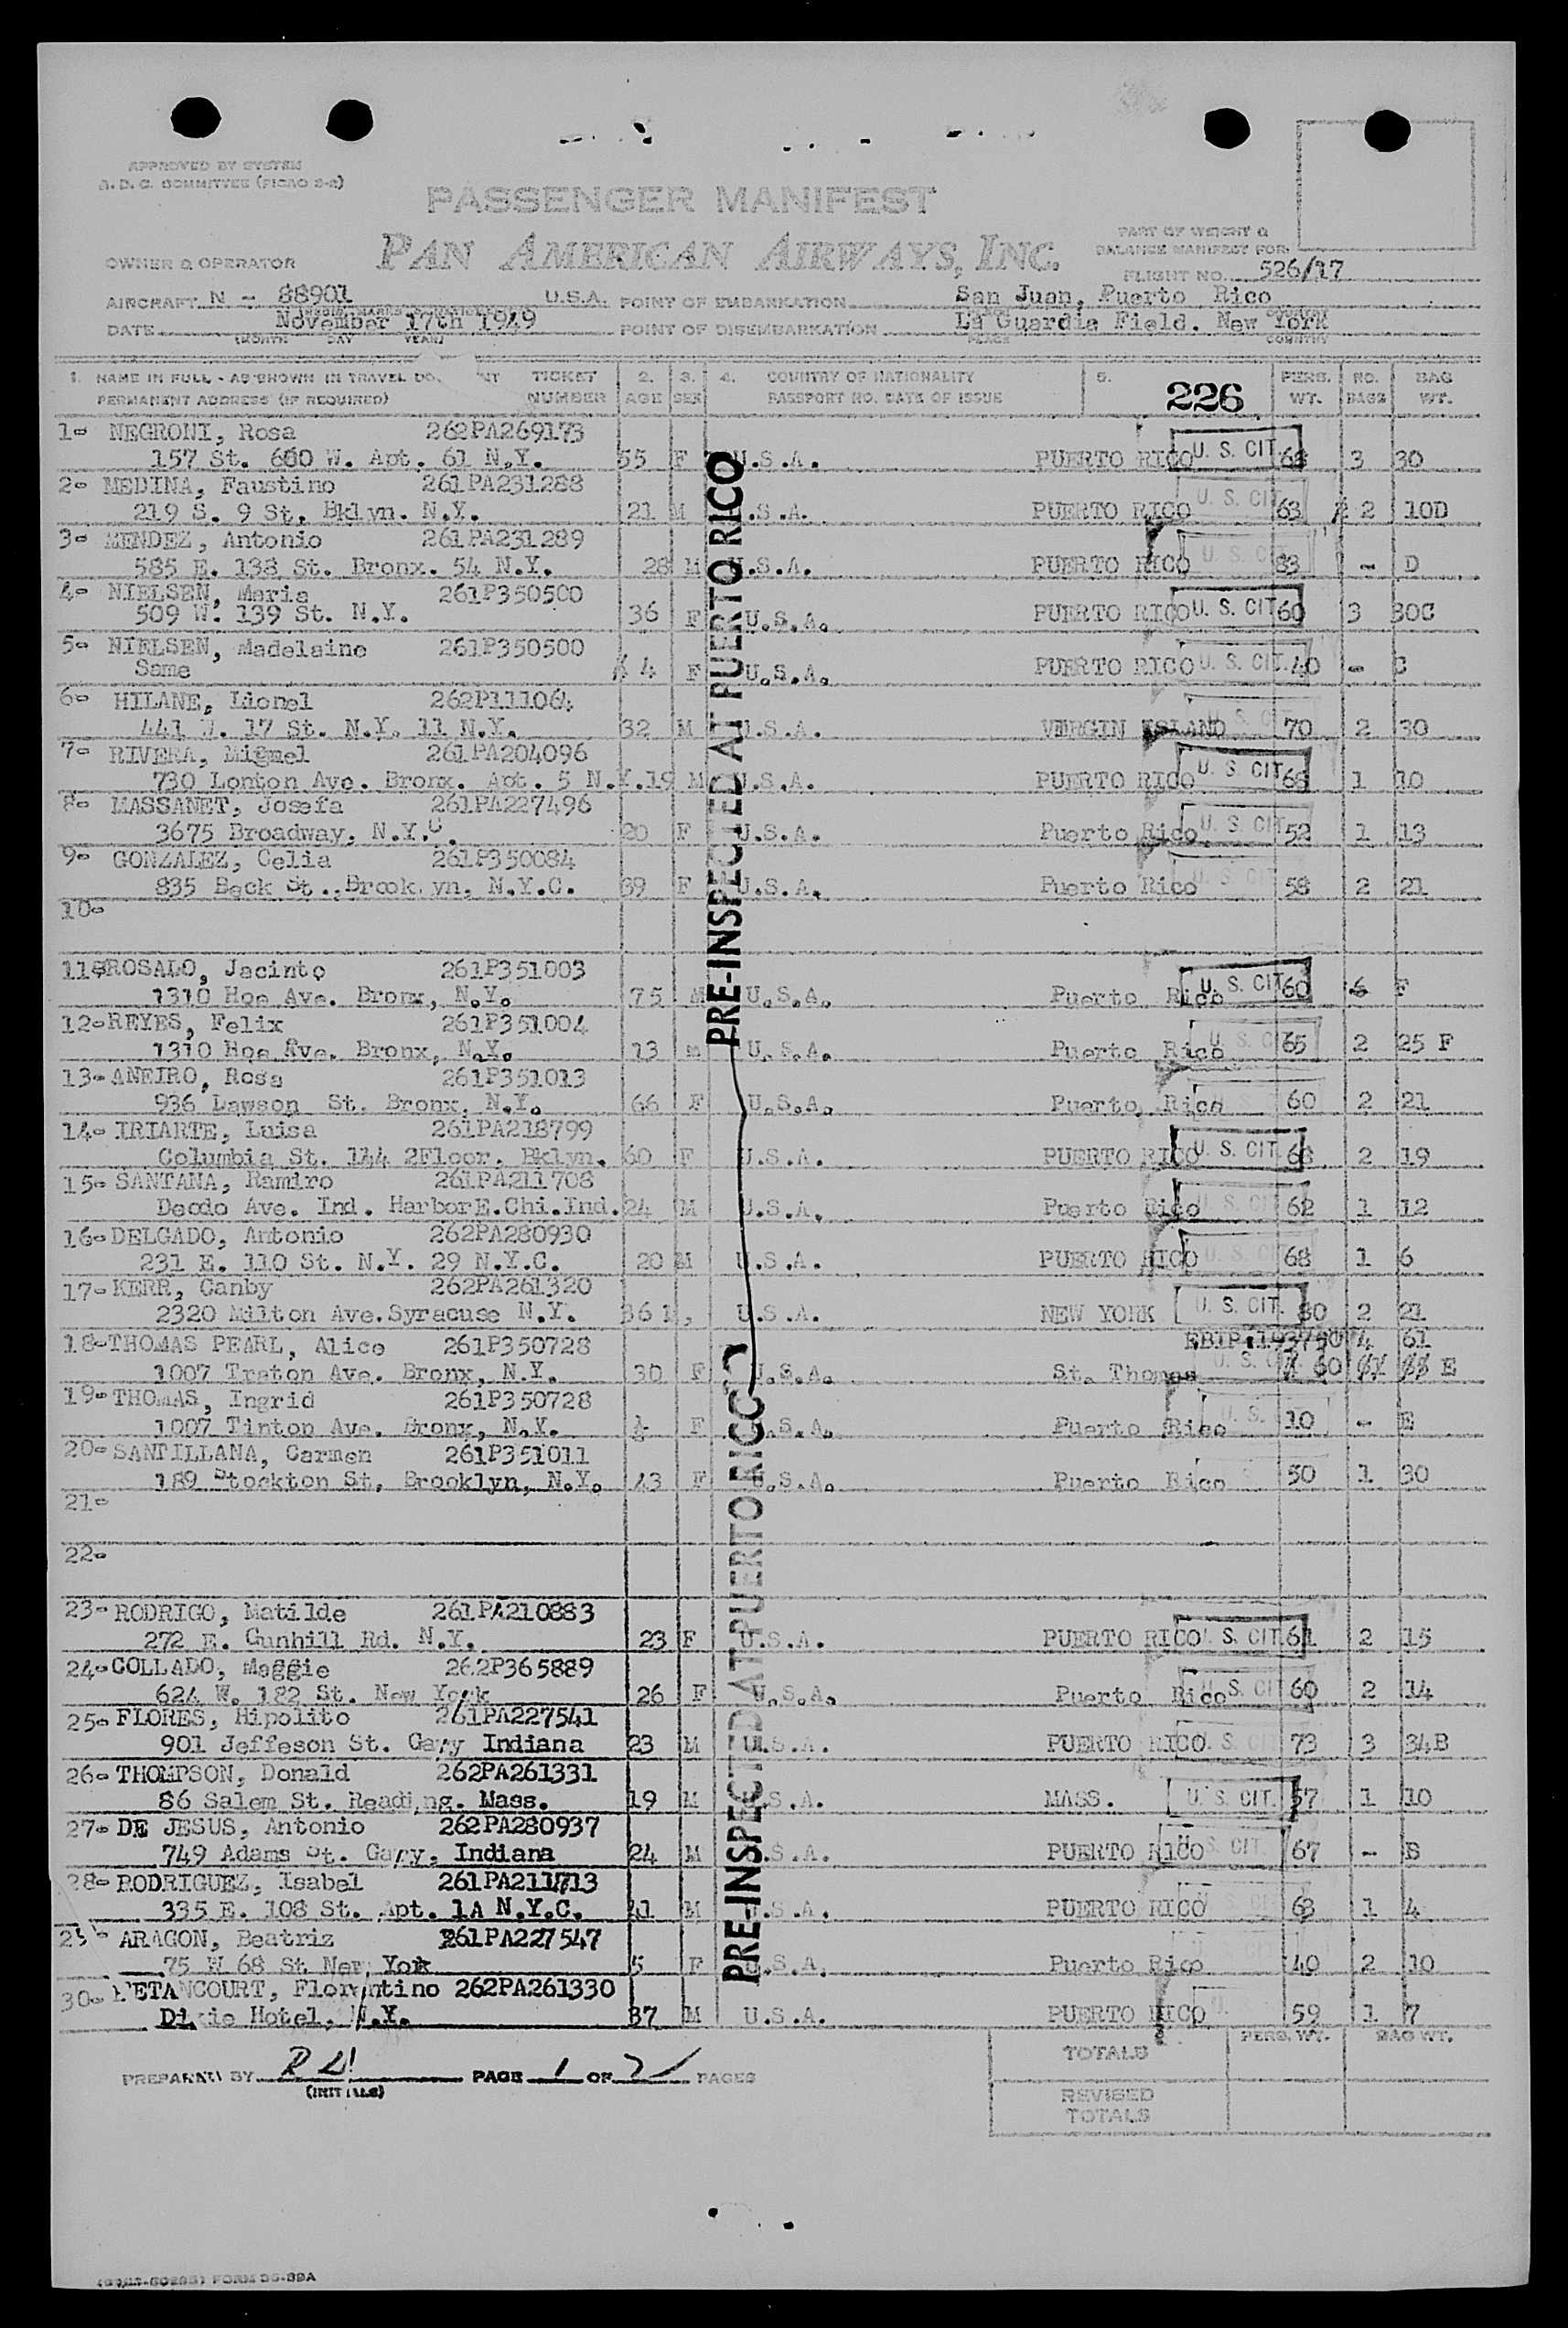 APPROVED BY SYSTEM
A. D. C. COMMITTEE (PICAO 2-2)
PASSENGER MANIFEST
PAN AMERICAN AIRWAYS, INC.
PART OF WEIGHT &
BALANCE MANIFEST FOR
OWNER & OPERATOR
FLIGHT NO. 526/17
AIRCRAFT N - 88901 U.S.A. POINT OF EMBARKATION San Juan, Puerto Rico
DATE November 17th 1949 POINT OF DISEMBARKATION La Guardia Field. New York
(MONTH DAY YEAR) PLACE COUNTRY
1. NAME IN FULL - AS SHOWN IN TRAVEL TICKET 2. 3. 4. COUNTRY OF NATIONALITY 5. 226 PERS. NO. BAG
PERMANENT ADDRESS (IF REQUIRED) NUMBER AGE SEX PASSPORT NO. DATE OF ISSUE WT. BAGS WT.
1- NEGRONI, Rosa 262PA269173
157 St. 600 W. Apt. 61 N.Y. 55 F U.S.A. PUERTO RICO U. S. CIT. 68 3 30
2- MEDINA, Faustino 261PA231288
219 S. 9 St. Bklyn. N.Y. 21 M .S.A. PUERTO RICO U. S. CIT 63 2 10D
3- MENDEZ, Antonio 261PA231289
585 E. 138 St. Bronx. 54 N.Y. 28 M U.S.A. PUERTO RICO U. S. CIT 83 - D
4- NIELSEN, Maria 261P350500
509 W. 139 St. N.Y. 36 F U.S.A. PUERTO RICO U. S. CIT 60 3 30C
5- NIELSEN, Madelaine 261P350500
Same 4 F U.S.A. PUERTO RICO U. S. CIT. 40 - C
6- HILANE, Lionel 262P111064
441 W. 17 St. N.Y. 11 N.Y. 32 M U.S.A. VERGIN ISLAND U. S. CIT 70 2 30
7- RIVERA, Migmel 261PA204096
730 Lonton Ave. Bronx. Apt. 5 N.Y. 19 M U.S.A. PUERTO RICO U. S. CIT 68 1 10
8- MASSANET, Josefa 261PA227496
3675 Broadway, N.Y.C. 20 F U.S.A. Puerto Rico U. S. CIT 52 1 13
9- GONZALEZ, Celia 261P350084
835 Beck St., Brook.yn, N.Y.C. 39 F U.S.A. Puerto Rico U. S. CIT 58 2 21
10-
11- ROSALO, Jacinto 261P351003
1310 Hoe Ave. Bronx, N.Y. 75 M U.S.A. Puerto Rico U. S. CIT 60 6 F
12- REYES, Felix 261P351004
1310 Hoe Ave. Bronx, N.Y. 13 m U.S.A. Puerto Rico U. S. C 65 2 25 F
13- ANEIRO, Rosa 261P351013
936 Lawson St. Bronx, N.Y. 66 F U.S.A. Puerto, Rico 60 2 21
14- IRIARTE, Luisa 261PA218799
Columbia St. 144 2Floor. Bklyn. 60 F U.S.A. PUERTO RICO U. S. CIT. 68 2 19
15- SANTANA, Ramiro 261PA211708
Deodo Ave. Ind. HarborE.Chi.Ind. 24 M U.S.A. Puerto Rico U. S. CIT 62 1 12
16- DELGADO, Antonio 262PA280930
231 E. 110 St. N.Y. 29 N.Y.C. 20 M U.S.A. PUERTO RICO U. S. CIT 68 1 6
17- KERR, Canby 262PA261320
2320 Milton Ave. Syracuse N.Y. 36 U.S.A. NEW YORK U. S. CIT. 80 2 21
18- THOMAS PEARL, Alice 261P350728 4 61
1007 Traton Ave. Bronx, N.Y. 30 F U.S.A. St. Thomas U. S. C 60 E
19- THOMAS, Ingrid 261P350728
1007 Tinton Ave. Bronx, N.Y. F .S.A. Puerto Rico U. S. 10 - E
20- SANTILLANA, Carmen 261P351011
189 Stockton St, Brooklyn, N.Y. 43 F U.S.A. Puerto Rico 50 1 30
21-
22-
23- RODRIGO, Matilde 261PA210883
272 E. Gunhill Rd. N.Y. 23 F U.S.A. PUERTO RICO U. S. CIT. 61 2 15
24- COLLADO, Maggie 262P365889
624 W. 182 St. New York 26 F U.S.A. Puerto Rico U. S. CIT 60 2 14
25- FLORES, Hipolito 261PA227541
901 Jeffeson St. Gary Indiana 23 M U.S.A. PUERTO RICO S. CIT 73 3 34B
26- THOMPSON, Donald 262PA261331
86 Salem St. Reading. Mass. 19 M .S.A. MASS. U. S. CIT. 57 1 10
27- DE JESUS, Antonio 262PA280937
749 Adams St. Gary, Indiana 24 M .S.A. PUERTO RICO S. CIT. 67 - B
28- RODRIGUEZ, Isabel 261PA211713
335 E. 108 St. Apt. 1A N.Y.C. 41 M .S.A. PUERTO RICO 63 1 4
29- ARAGON, Beatriz 261PA227547
75 W 68 St New York 5 F .S.A. Puerto Rico 40 2 10
30- BETANCOURT, Florentino 262PA261330
Dixie Hotel, N.Y. 37 M U.S.A. PUERTO RICO U. 59 1 7
PRE-INSPECTED AT PUERTO RICO
PRE-INSPECTED AT PUERTO RICO
PERS. WT. BAG WT.
TOTALS
PREPARED BY PAGE 1 OF 2 PAGES
(INITIALS)
REVISED
TOTALS
FORM DS-39A